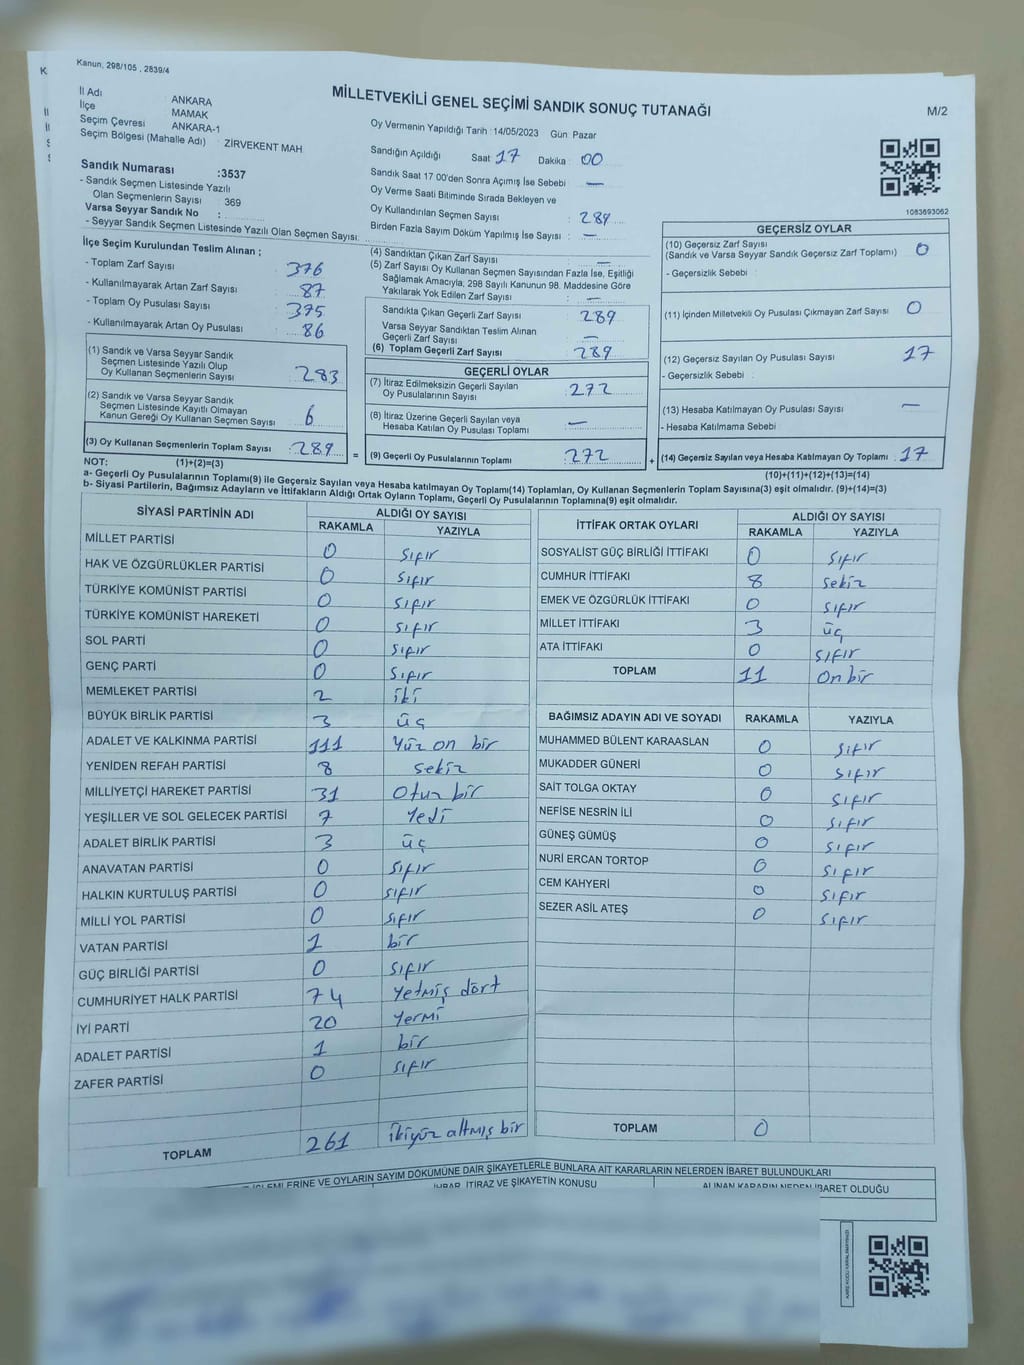 Kanun, 298/105 , 2839/4
MİLLETVEKİLİ GENEL SEÇİMİ SANDIK SONUÇ TUTANAĞI
M/2
İl Adı ANKARA
İlçe MAMAK
Seçim Çevresi ANKARA-1
Seçim Bölgesi (Mahalle Adı) : ZİRVEKENT MAH.
Sandık Numarası :3537
- Sandık Seçmen Listesinde Yazılı
Olan Seçmenlerin Sayısı : 369
Varsa Seyyar Sandık No :
- Seyyar Sandık Seçmen Listesinde Yazılı Olan Seçmen Sayısı:
Oy Vermenin Yapıldığı Tarih :14/05/2023 Gün Pazar
Sandığın Açıldığı Saat 17 Dakika : 00
Sandık Saat 17 00'den Sonra Açımış İse Sebebi : —
Oy Verme Saati Bitiminde Sırada Bekleyen ve
Oy Kullandırılan Seçmen Sayısı : 289
Birden Fazla Sayım Döküm Yapılmış İse Sayısı : —
1083693062
İlçe Seçim Kurulundan Teslim Alınan ;
- Toplam Zarf Sayısı : 376
- Kullanılmayarak Artan Zarf Sayısı : 87
- Toplam Oy Pusulası Sayısı : 375
- Kullanılmayarak Artan Oy Pusulası : 86
(1) Sandık ve Varsa Seyyar Sandık
Seçmen Listesinde Yazılı Olup
Oy Kullanan Seçmenlerin Sayısı : 283
(2) Sandık ve Varsa Seyyar Sandık
Seçmen Listesinde Kayıtlı Olmayan
Kanun Gereği Oy Kullanan Seçmen Sayısı : 6
(3) Oy Kullanan Seçmenlerin Toplam Sayısı : 289
(4) Sandıktan Çıkan Zarf Sayısı : —
(5) Zarf Sayısı Oy Kullanan Seçmen Sayısından Fazla İse, Eşitliği
Sağlamak Amacıyla, 298 Sayılı Kanunun 98. Maddesine Göre
Yakılarak Yok Edilen Zarf Sayısı : —
Sandıkta Çıkan Geçerli Zarf Sayısı : 289
Varsa Seyyar Sandıktan Teslim Alınan
Geçerli Zarf Sayısı : —
(6) Toplam Geçerli Zarf Sayısı : 289
GEÇERLİ OYLAR
(7) İtiraz Edilmeksizin Geçerli Sayılan
Oy Pusulalarının Sayısı : 272
(8) İtiraz Üzerine Geçerli Sayılan veya
Hesaba Katılan Oy Pusulası Toplamı : —
= (9) Geçerli Oy Pusulalarının Toplamı : 272
GEÇERSİZ OYLAR
(10) Geçersiz Zarf Sayısı
(Sandık ve Varsa Seyyar Sandık Geçersiz Zarf Toplamı) : 0
- Geçersizlik Sebebi :
(11) İçinden Milletvekili Oy Pusulası Çıkmayan Zarf Sayısı : 0
(12) Geçersiz Sayılan Oy Pusulası Sayısı : 17
- Geçersizlik Sebebi :
(13) Hesaba Katılmayan Oy Pusulası Sayısı : —
- Hesaba Katılmama Sebebi :
+ (14) Geçersiz Sayılan veya Hesaba Katılmayan Oy Toplamı : 17
NOT: (1)+(2)=(3)
(10)+(11)+(12)+(13)=(14)
a- Geçerli Oy Pusulalarının Toplamı(9) ile Geçersiz Sayılan veya Hesaba katılmayan Oy Toplamı(14) Toplamları, Oy Kullanan Seçmenlerin Toplam Sayısına(3) eşit olmalıdır. (9)+(14)=(3)
b- Siyasi Partilerin, Bağımsız Adayların ve İttifakların Aldığı Ortak Oyların Toplamı, Geçerli Oy Pusulalarının Toplamına(9) eşit olmalıdır.
SİYASİ PARTİNİN ADI ALDIĞI OY SAYISI
RAKAMLA YAZIYLA
MİLLET PARTİSİ 0 sıfır
HAK VE ÖZGÜRLÜKLER PARTİSİ 0 sıfır
TÜRKİYE KOMÜNİST PARTİSİ 0 sıfır
TÜRKİYE KOMÜNİST HAREKETİ 0 sıfır
SOL PARTİ 0 sıfır
GENÇ PARTİ 0 sıfır
MEMLEKET PARTİSİ 2 iki
BÜYÜK BİRLİK PARTİSİ 3 üç
ADALET VE KALKINMA PARTİSİ 111 Yüz on bir
YENİDEN REFAH PARTİSİ 8 sekiz
MİLLİYETÇİ HAREKET PARTİSİ 31 Otuz bir
YEŞİLLER VE SOL GELECEK PARTİSİ 7 Yedi
ADALET BİRLİK PARTİSİ 3 üç
ANAVATAN PARTİSİ 0 sıfır
HALKIN KURTULUŞ PARTİSİ 0 sıfır
MİLLİ YOL PARTİSİ 0 sıfır
VATAN PARTİSİ 1 bir
GÜÇ BİRLİĞİ PARTİSİ 0 sıfır
CUMHURİYET HALK PARTİSİ 74 Yetmiş dört
İYİ PARTİ 20 Yermi
ADALET PARTİSİ 1 bir
ZAFER PARTİSİ 0 sıfır
TOPLAM 261 ikiyüz altmış bir
İTTİFAK ORTAK OYLARI ALDIĞI OY SAYISI
RAKAMLA YAZIYLA
SOSYALİST GÜÇ BİRLİĞİ İTTİFAKI 0 sıfır
CUMHUR İTTİFAKI 8 sekiz
EMEK VE ÖZGÜRLÜK İTTİFAKI 0 sıfır
MİLLET İTTİFAKI 3 üç
ATA İTTİFAKI 0 sıfır
TOPLAM 11 on bir
BAĞIMSIZ ADAYIN ADI VE SOYADI RAKAMLA YAZIYLA
MUHAMMED BÜLENT KARAASLAN 0 sıfır
MUKADDER GÜNERİ 0 sıfır
SAİT TOLGA OKTAY 0 sıfır
NEFİSE NESRİN İLİ 0 sıfır
GÜNEŞ GÜMÜŞ 0 sıfır
NURİ ERCAN TORTOP 0 sıfır
CEM KAHYERİ 0 sıfır
SEZER ASİL ATEŞ 0 sıfır
TOPLAM 0
İŞLEMLERİNE VE OYLARIN SAYIM DÖKÜMÜNE DAİR ŞİKAYETLERLE BUNLARA AİT KARARLARIN NELERDEN İBARET BULUNDUKLARI
İHBAR, İTİRAZ VE ŞİKAYETİN KONUSU
ALINAN KARARIN NEDEN İBARET OLDUĞU